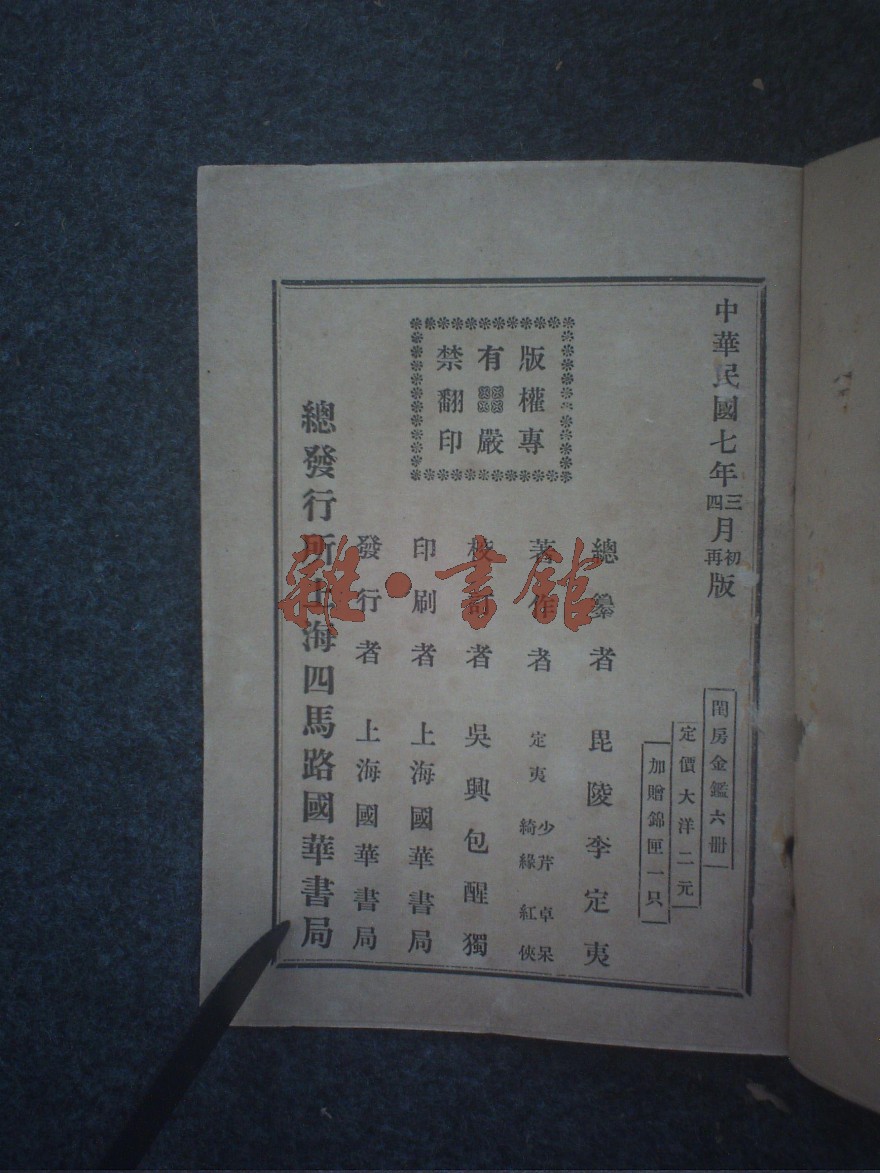 中華民國七年三四月初再版
閨房金鑑六册
定價大洋二元
加贈錦匣一只
版權專
有嚴
禁翻印
總纂者 毘陵李定夷
著作者 定夷 少芹 卓呆 綺緣 紅俠
校訂者 吳興包醒獨
印刷者 上海國華書局
發行者 上海國華書局
總發行所上海四馬路國華書局
雜·書館